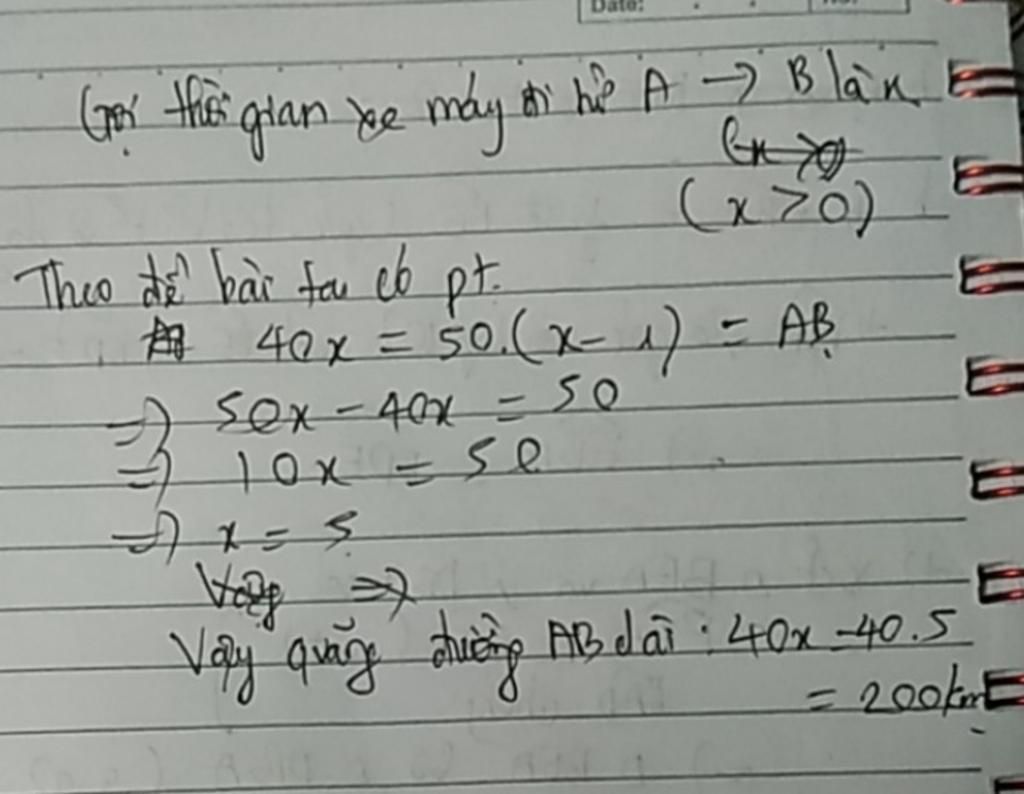 Date:
Gọi thời gian xe máy đi từ A → B là x
(x>0)
(x > 0)
Theo đề bài ta có pt.
40x = 50.(x - 1) = AB
=> 50x - 40x = 50
=> 10x = 50
=> x = 5
Vậy =>
Vậy quãng đường AB dài: 40x = 40.5
= 200km